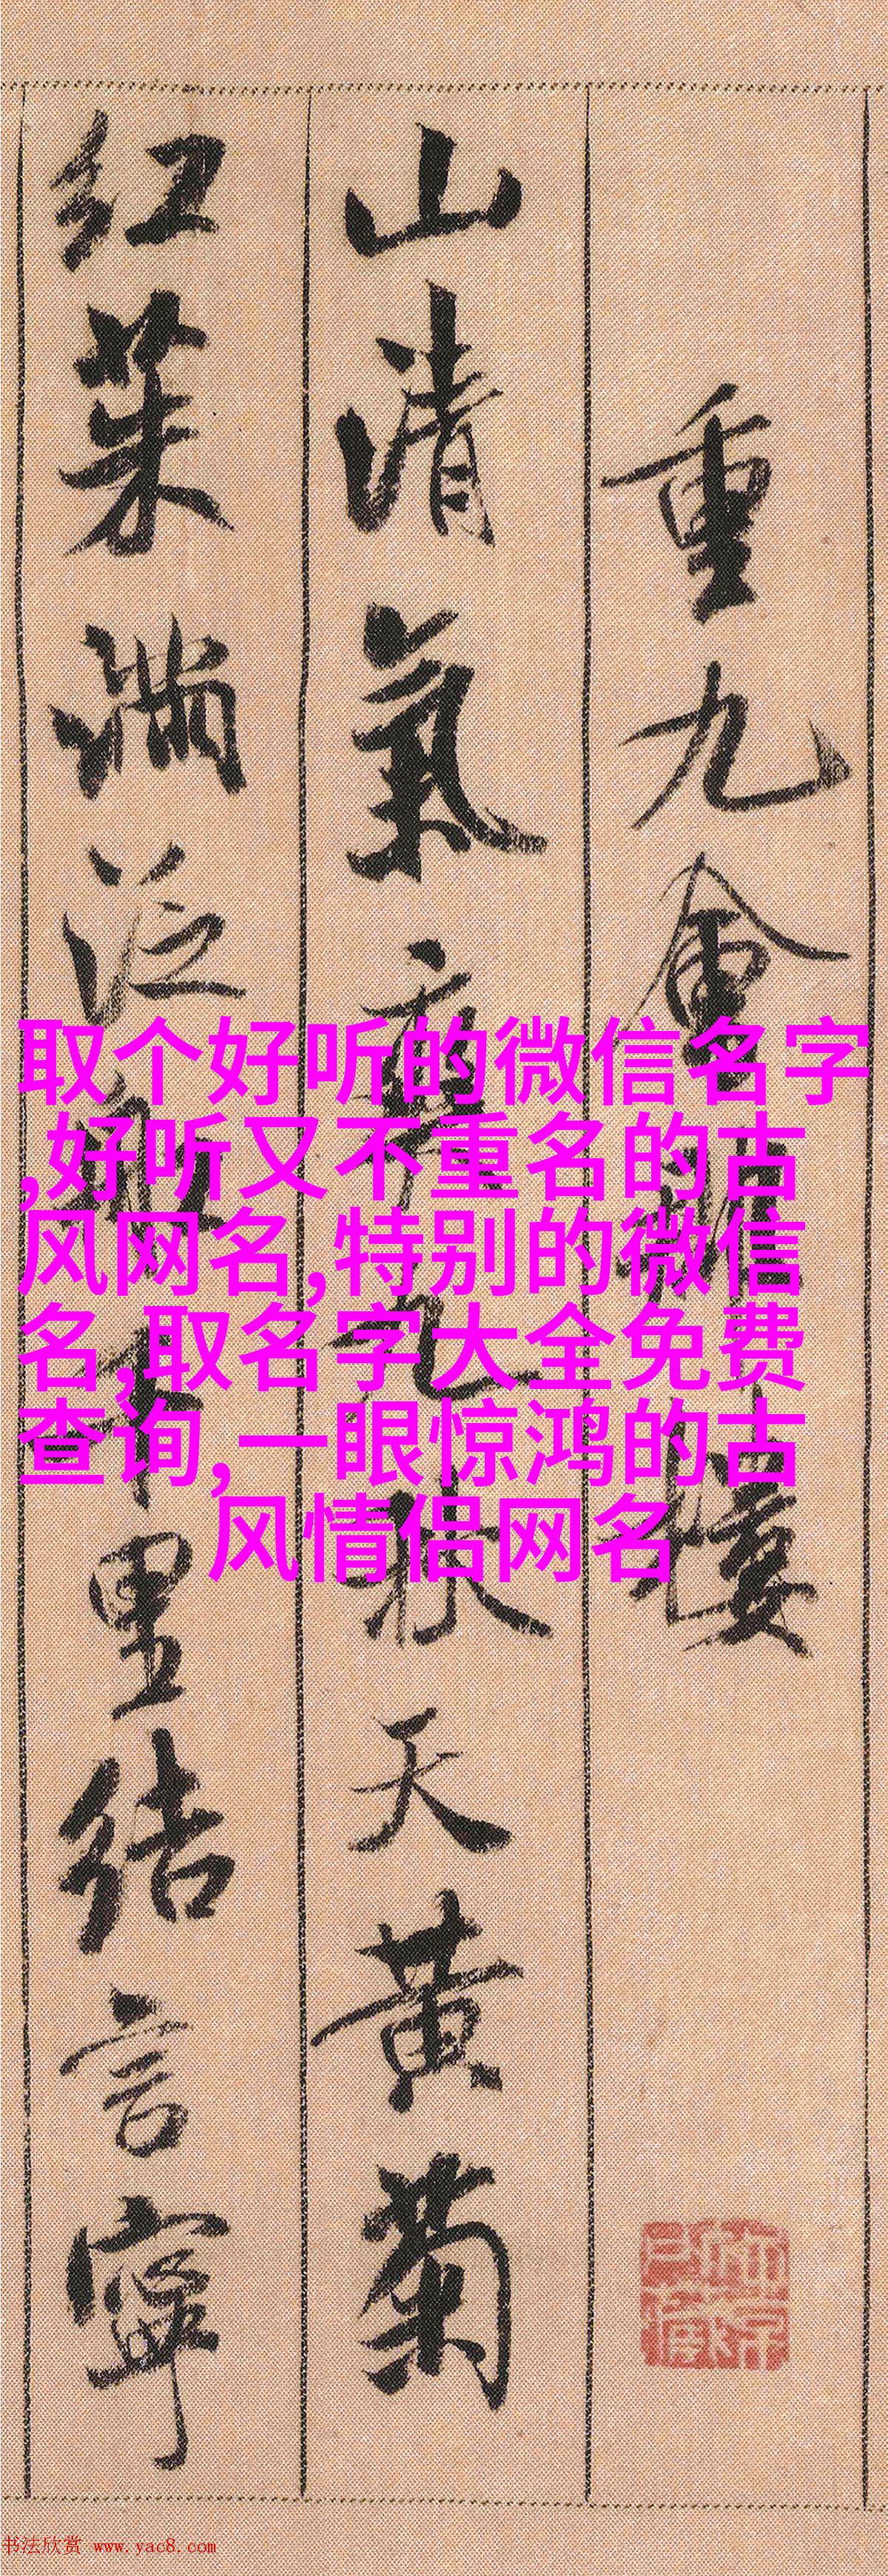 重九會郡樓
山清氣爽九秋天黃菊
紅茱滿泛船千里結言寧
取个好听的微信名字
,好听又不重名的古
风网名,特别的微信
名,取名字大全免费
查询,一眼惊鸿的古
风情侣网名
书法欣赏 www.yac8.com